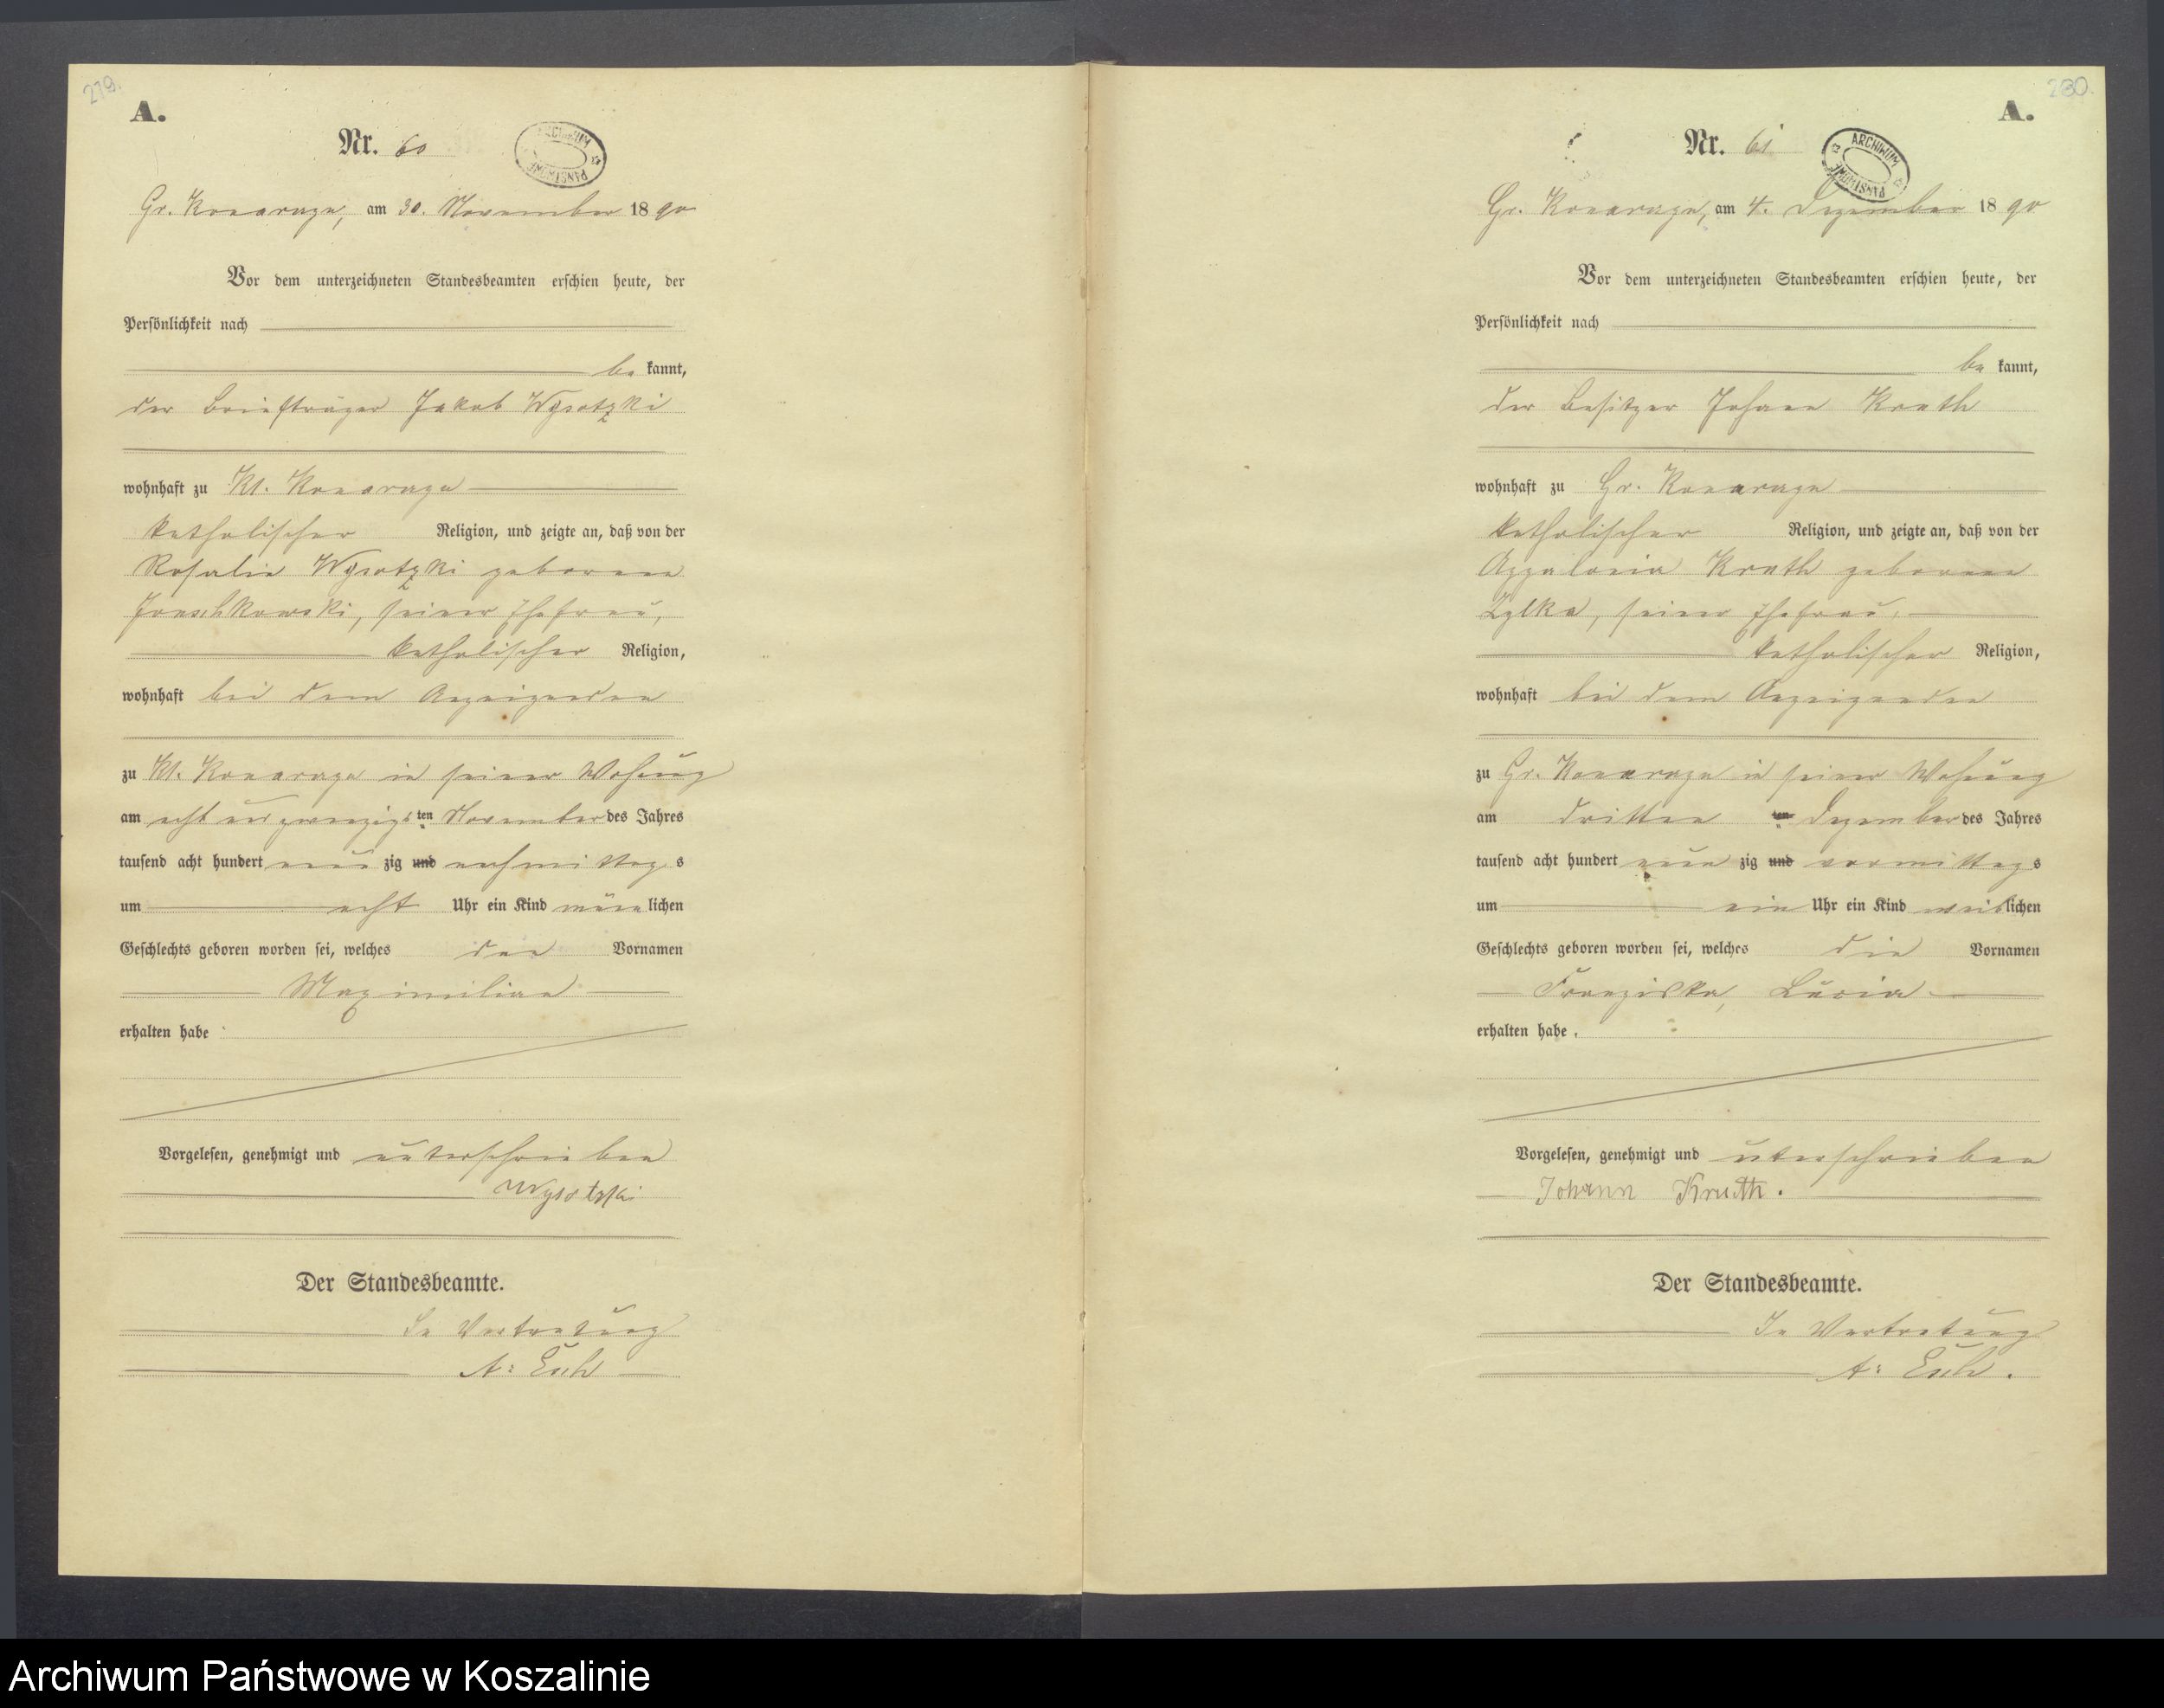 279.
A.
Nr. 60
ARCHIWUM PAŃSTWOWE
Gr. Konarczyn, am 30. November 1890
Vor dem unterzeichneten Standesbeamten erschien heute, der
Persönlichkeit nach
be kannt,
der Briefträger Jakob Wysotzki
wohnhaft zu Kl. Konarczyn
katholischer Religion, und zeigte an, daß von der
Rosalie Wysotzki geborene
seiner Ehefrau,
katholischer Religion,
wohnhaft bei dem Anzeigenden
zu Kl. Konarczyn in seiner Wohnung
am acht und zwanzigsten November des Jahres
tausend acht hundert neun zig und nachmittags
um acht Uhr ein Kind männlichen
Geschlechts geboren worden sei, welches den Vornamen
Maximilian
erhalten habe
Vorgelesen, genehmigt und unterschrieben
Wysotzki
Der Standesbeamte.
In Vertretung
A:
280.
A.
Nr. 61
ARCHIWUM PAŃSTWOWE
Gr. Konarczyn, am 4. Dezember 1890
Vor dem unterzeichneten Standesbeamten erschien heute, der
Persönlichkeit nach
be kannt,
der Besitzer Johann Kruth
wohnhaft zu Gr. Konarczyn
katholischer Religion, und zeigte an, daß von der
Appalonia Kruth geborene
Zylka, seiner Ehefrau,
katholischer Religion,
wohnhaft bei dem Anzeigenden
zu Gr. Konarczyn in seiner Wohnung
am dritten ten Dezember des Jahres
tausend acht hundert neun zig und vormittags
um ein Uhr ein Kind weiblichen
Geschlechts geboren worden sei, welches die Vornamen
Franziska, Lucia
erhalten habe.
Vorgelesen, genehmigt und unterschrieben
Johann Kruth.
Der Standesbeamte.
In Vertretung
A:
Archiwum Państwowe w Koszalinie